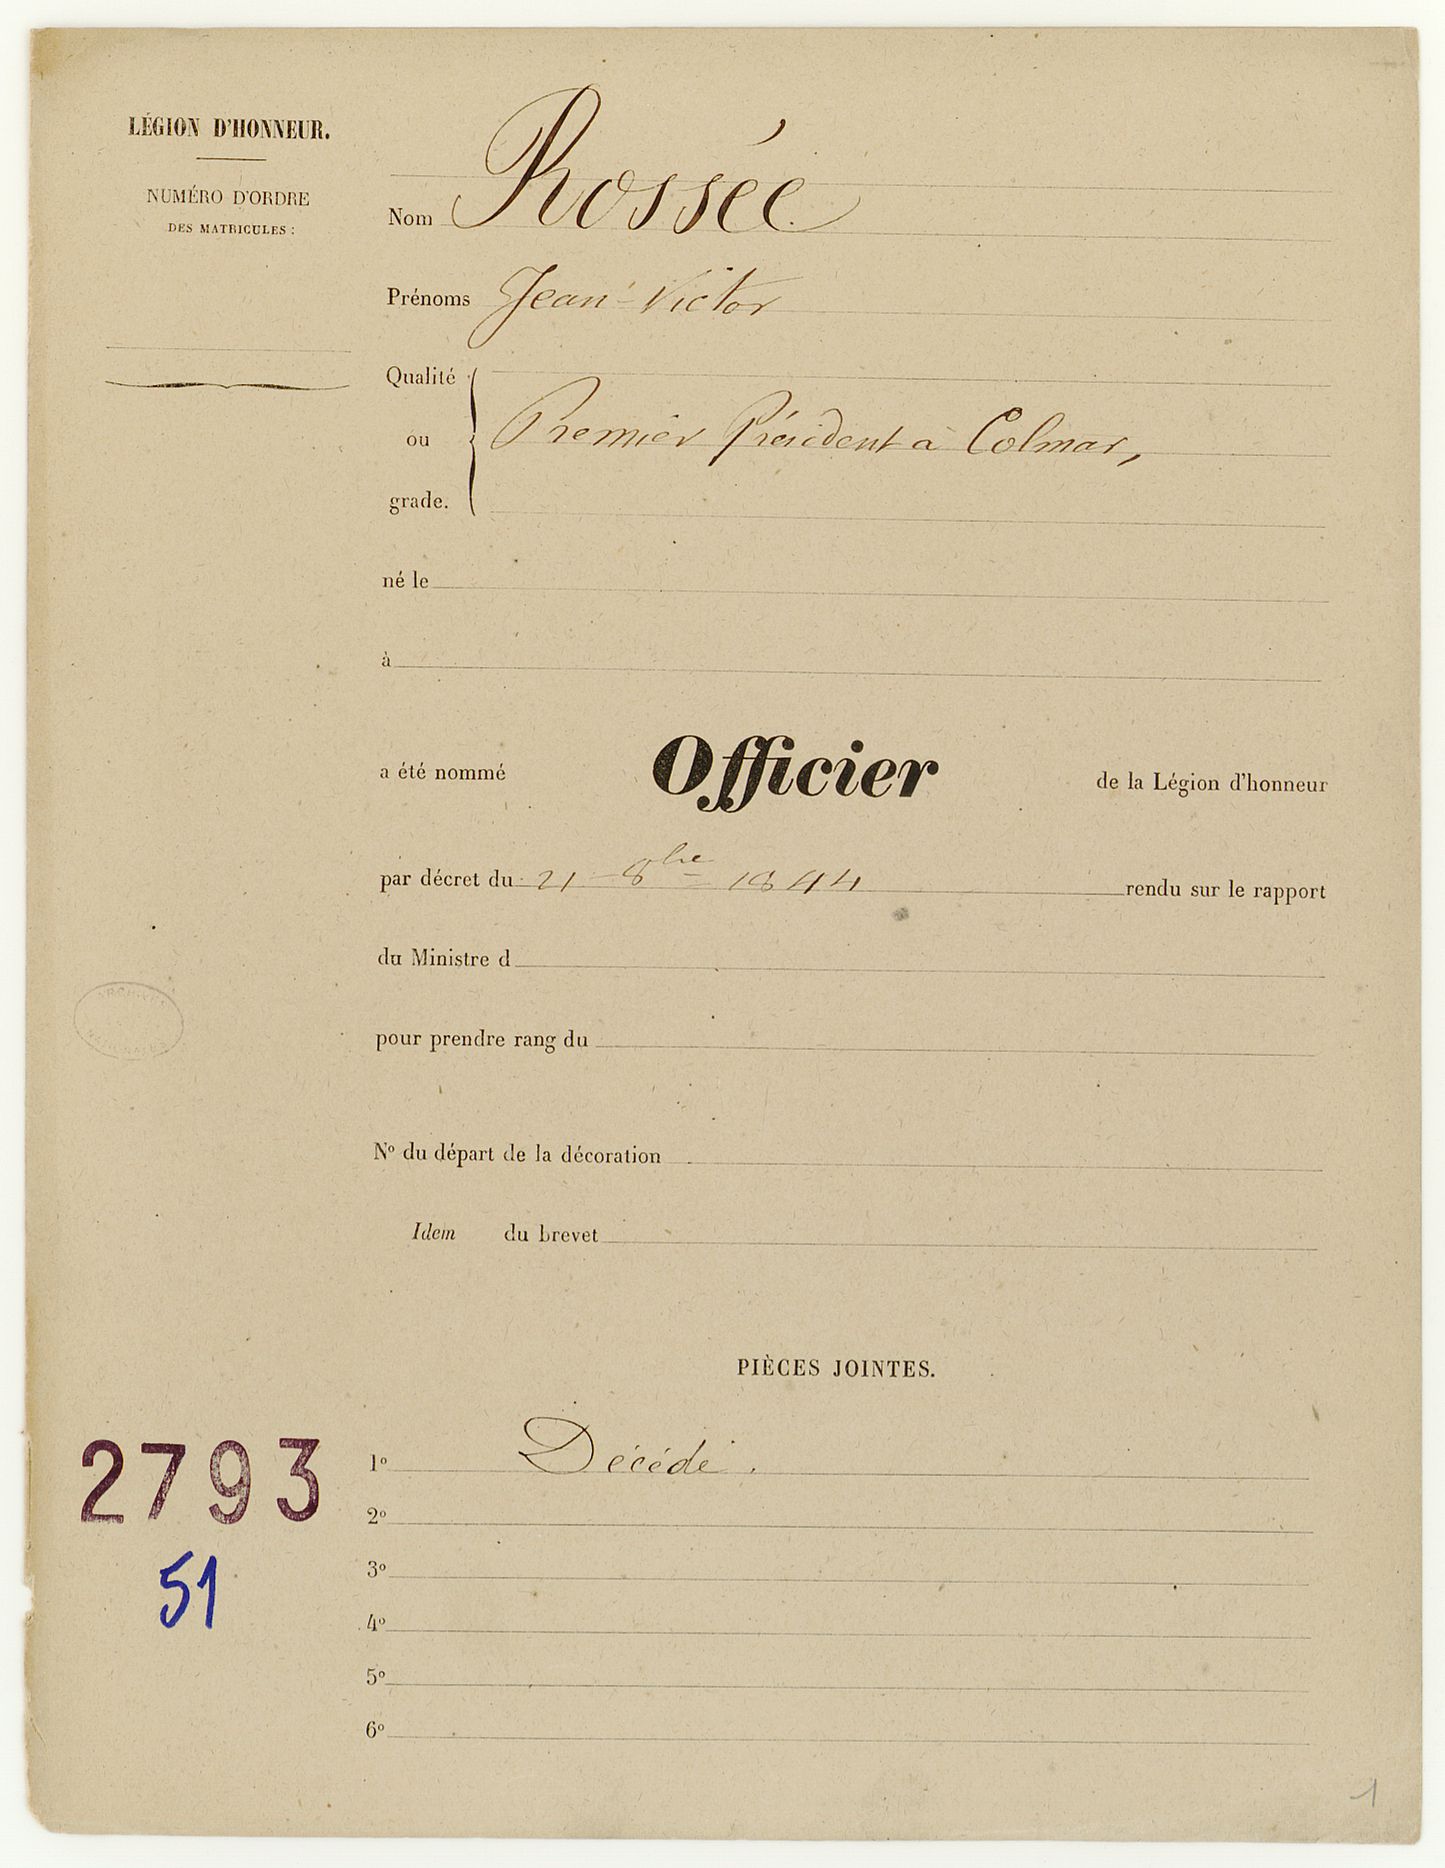 LÉGION D'HONNEUR.
NUMÉRO D'ORDRE
DES MATRICULES :
Nom Rossée
Prénoms Jean-Victor
Qualité
ou Premier Président à Colmar,
grade.
né le
à
a été nommé Officier de la Légion d'honneur
par décret du 21 8bre 1844 rendu sur le rapport
du Ministre d
pour prendre rang du
No du départ de la décoration
Idem du brevet
PIÈCES JOINTES.
1o Décédé.
2o
3o
4o
5o
6o
2793
51
1